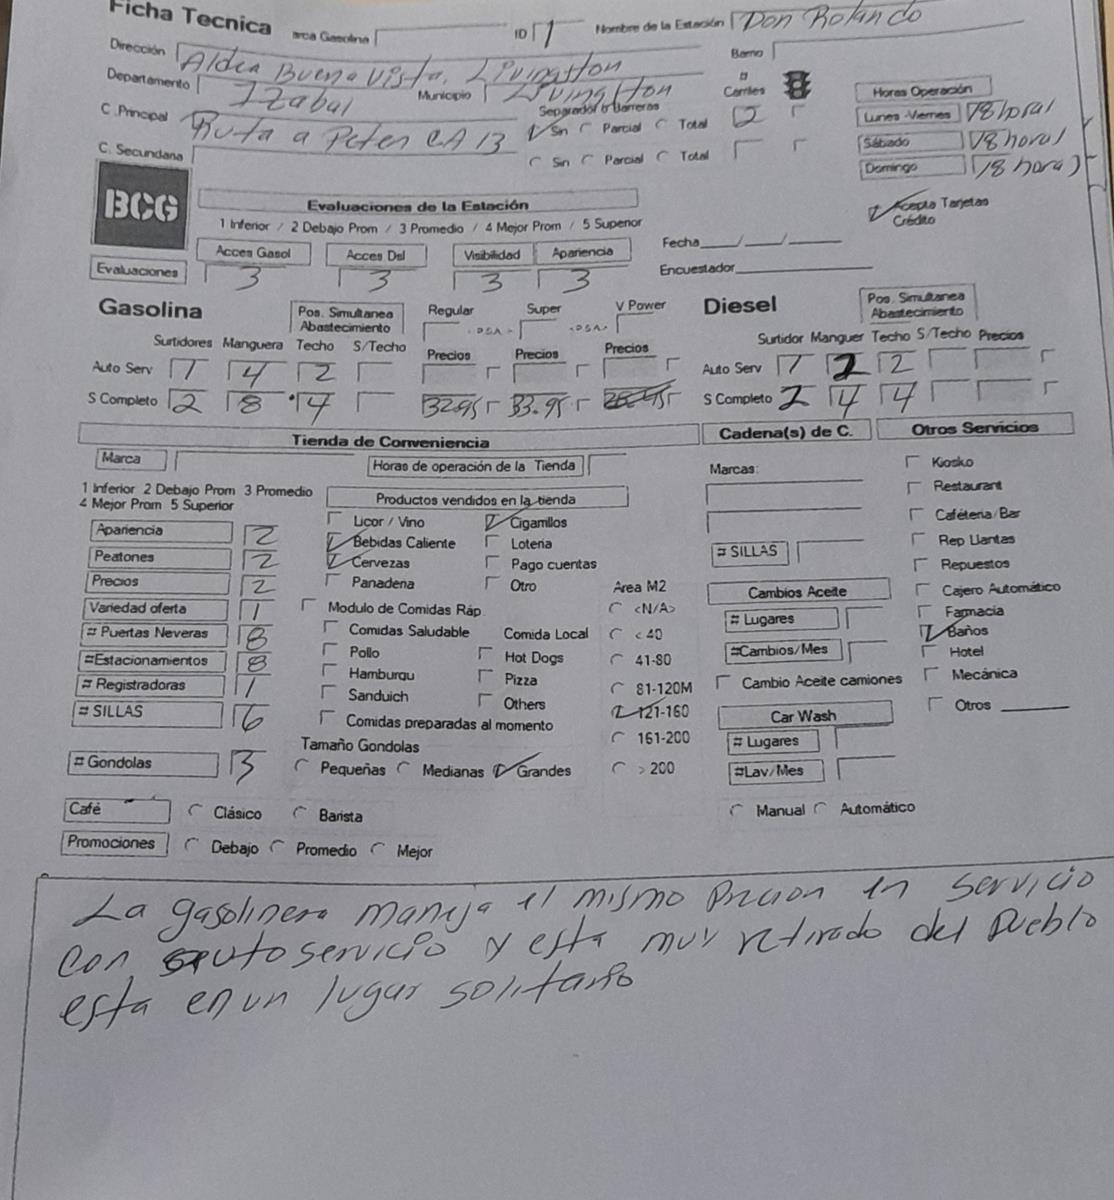 Ficha Tecnica arca Gasolina ID 1 Nombre de la Estación Don Rolando
Dirección Aldea Buena Vista, Livingston Barrio
Departamento Izabal Municipio Livingston # Carriles Horas Operación
C. Principal Ruta a Peten CA 13 Separador o Barreras Sin Parcial Total 2 Lunes -Viernes 18 horas
C. Secundaria Sin Parcial Total Sábado 18 horas
Domingo 18 horas
BCG
Evaluaciones de la Estación Acepta Tarjetas Crédito
1 Inferior / 2 Debajo Prom / 3 Promedio / 4 Mejor Prom / 5 Superior
Acces Gasol Acces Dsl Visibilidad Apariencia Fecha___/___/_____
Evaluaciones 3 3 3 3 Encuestador
Gasolina Pos. Simultanea Abastecimiento Regular Super V Power Diesel Pos. Simultanea Abastecimiento
Surtidores Manguera Techo S/Techo Precios Precios Precios Surtidor Manguer Techo S/Techo Precios
Auto Serv 1 4 2 Auto Serv 1 2 2
S Completo 2 8 4 32.95 33.95 S Completo 2 4 4
Tienda de Conveniencia Cadena(s) de C. Otros Servicios
Marca Horas de operación de la Tienda Marcas: Kiosko
1 Inferior 2 Debajo Prom 3 Promedio Restaurant
4 Mejor Prom 5 Superior Productos vendidos en la tienda
Apariencia 2 Licor / Vino Cigarrillos Caféteria/Bar
Peatones 2 Bebidas Caliente Loteria # SILLAS Rep Llantas
Cervezas Pago cuentas Repuestos
Precios 2 Panaderia Otro Area M2 Cambios Aceite Cajero Automático
Variedad oferta 1 Modulo de Comidas Ráp. <N/A> # Lugares Farmacia
# Puertas Neveras 8 Comidas Saludable Comida Local < 40 Baños
#Estacionamientos 8 Pollo Hot Dogs 41-80 #Cambios/Mes Hotel
# Registradoras 1 Hamburgu Pizza 81-120M Cambio Aceite camiones Mecánica
# SILLAS 6 Sanduich Others 121-160 Car Wash Otros
Comidas preparadas al momento 161-200 # Lugares
Tamaño Gondolas
# Gondolas 3 Pequeñas Medianas Grandes > 200 #Lav/Mes
Café Clásico Barista Manual Automático
Promociones Debajo Promedio Mejor
La gasolinera maneja el mismo en servicio
con autoservicio y esta muy retirado del pueblo
esta en un lugar solitario